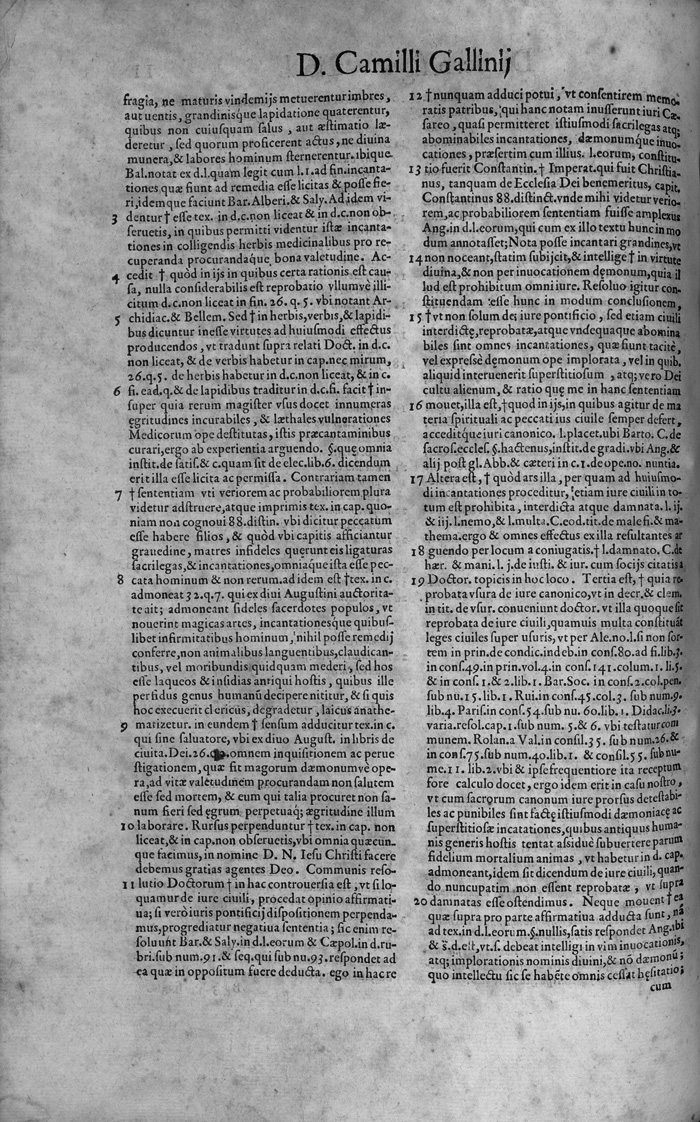 D. Camilli Gallinij
fragia, ne maturis vindemijs metuerentur imbres,
aut uentis, grandinisque lapidatione quaterentur,
quibus non cuiusquam salus, aut æstimatio læ-
deretur, sed quorum proficerent actus, ne diuina
munera, & labores hominum sternerentur. ibique
Bal. notat ex d.l. quam legit cum l.1. ad fin. incanta-
tiones quæ fiunt ad remedia esse licitas & posse fie-
ri, idemque faciunt Bar. Alberi. & Saly. Ad idem vi-
3 dentur † esse tex. in d.c. non liceat & in d.c. non ob-
seruetis, in quibus permitti videntur istæ incanta-
tiones in colligendis herbis medicinalibus pro re-
cuperanda procurandaque bona valetudine. Ac-
4 cedit † quòd in ijs in quibus certa rationis est cau-
sa, nulla considerabilis est reprobatio yllumvè illi-
citum d.c. non liceat in fin. 26. q. 5. vbi notant Ar-
chidiac. & Bellem. Sed † in herbis, verbis, & lapidi-
5 bus dicuntur inesse virtutes ad huiusmodi effectus
producendos, vt tradunt supra relati Doct. in d.c.
non liceat, & de verbis habetur in cap. nec mirum,
26. q. 5. de herbis habetur in d.c. non liceat, & in c.
6 si. ead. q. & de lapidibus traditur in d.c. si. facit † in-
super quia rerum magister vsus docet innumeras
ęgritudines incurabiles, & læthales vulnerationes
Medicorum ope destitutas, istis præcantaminibus
curari, ergo ab experientia arguendo. §. quę omnia
instit. de satis. & c. quam sit de elec. lib. 6. dicendum
erit illa esse licita ac permissa. Contrariam tamen
7 † sententiam vti veriorem ac probabiliorem plura
videtur adstruere, atque imprimis tex. in cap. quo-
niam non cognoui 88. distin. vbi dicitur peccatum
esse habere filios, & quòd vbi capitis afficiantur
grauedine, matres infideles querunt eis ligaturas
sacrilegas, & incantationes, omniaque ista esse pec-
8 cata hominum & non rerum. ad idem est † tex. in c.
admoneat 32. q. 7. qui ex diui Augustini auctorita-
te ait; admoneant fideles sacerdotes populos, vt
nouerint magicas artes, incantationesque quibus-
libet infirmitatibus hominum, nihil posse remedij
conferre, non animalibus languentibus, claudican-
tibus, vel moribundis quidquam mederi, sed hos
esse laqueos & insidias antiqui hostis, quibus ille
perfidus genus humanũ decipere nititur, & si quis
hoc execuerit clericus, degradetur, laicus anathe-
9 matizetur. in eundem † sensum adducitur tex. in c.
qui sine saluatore, vbi ex diuo August. in libris de
ciuita. Dei. 26. omnem inquisitionem ac perue
stigationem, quæ fit magorum dæmonumvè ope-
ra, ad vitæ valetudinem procurandam non salutem
esse sed mortem, & eum qui talia procuret non sa-
num fieri sed ęgrum perpetuaq; ægritudine illum
10 laborare. Rursus perpenduntur † tex. in cap. non
liceat, & in cap. non obseruetis, vbi omnia quæcun-
que facimus, in nomine D. N. Iesu Christi facere
debemus gratias agentes Deo. Communis reso-
11 lutio Doctorum † in hac controuersia est, vt si lo-
quamur de iure ciuili, procedat opinio affirmati-
ua; si verò iuris pontificij dispositionem perpenda-
mus, progrediatur negatiua sententia; sic enim re-
soluũt Bar. & Saly. in d.l. eorum & Cæpol. in d. ru-
bri. sub num. 91. & seq. qui sub nu. 93. respõdet ad
ea quæ in oppositum fuere deducta. ego in hac re
12 † nunquam adduci potui, vt consentirem memo-
ratis patribus, qui hanc notam inusserunt iuri Cæ-
sareo, quasi permitteret istiusmodi sacrilegas atq;
abominabiles incantationes, dæmonumque inuo-
cationes, præsertim cum illius. l. eorum, constitu-
13 tio fuerit Constantin. † Imperat. qui fuit Christia-
nus, tanquam de Ecclesia Dei benemeritus, capit.
Constantinus 88. distinct. vnde mihi videtur verio-
rem, ac probabiliorem sententiam fuisse amplexus
Ang. in d.l. eorum, qui cum ex illo textu hunc in mo
dum annotasset; Nota posse incantari grandines, vt
14 non noceant, statim subijcit, & intellige † in virtute
diuina, & non per inuocationem dęmonum, quia il
lud est prohibitum omni iure. Resoluo igitur con-
stituendam esse hunc in modum conclusionem,
15 † vt non solum de iure pontificio, sed etiam ciuili
interdictę, reprobatæ, atque vndequaque abomina
biles sint omnes incantationes, quæ fiunt tacitè,
vel expressè dęmonum ope implorata, vel in quib.
aliquid interuenerit superstitiosum, atq; vero Dei
cultu alienum, & ratio quę me in hanc sententiam
16 mouet, illa est, † quod in ijs, in quibus agitur de ma
teria spirituali ac peccati ius ciuile semper defert,
acceditque iuri canonico. l. placet. ubi Barto. C. de
sacros. eccles. §. hactenus, instit. de gradi. vbi Ang. &
alij post gl. Abb. & cæteri in c. 1. de ope. no. nuntia.
17 Altera est, † quòd ars illa, per quam ad huiusmo-
di incantationes proceditur, etiam iure ciuili in to-
tum est prohibita, interdicta atque damnata. l. ij.
& iij. l. nemo, & l. multa. C. eod. tit. de malefi. & ma-
thema. ergo & omnes effectus ex illa resultantes ar
18 guendo per locum a coniugatis. † l. damnato. C. de
hær. & mani. l. j. de iusti. & iur. cum socijs citatis a
19 Doctor. topicis in hoc loco. Tertia est, † quia re
probata vsura de iure canonico, vt in decr. & clem.
in tit. de vsur. conueniunt doctor. vt illa quoque sit
reprobata de iure ciuili, quamuis multa constituãt
leges ciuiles super usuris, vt per Ale. no. l. si non sor-
tem in prin. de condic. indeb. in cons. 80. ad fi. lib. j.
in cons. 49. in prin. vol. 4. in cons. 141. colum. 1. li. 5.
& in cons. 1. & 2. lib. 1. Bar. Soc. in cons. 2. col. pen.
sub nu. 15. lib. 1. Rui. in cons. 45. col. 3. sub num. 9.
lib. 4. Paris. in cons. 54. sub nu. 60. lib. 1. Didac. li. 3.
varia. resol. cap. 1. sub num. 5. & 6. vbi testatur com
munem. Rolan. a Val. in consil. 35. sub num. 26. &
in cons. 75. sub num. 40. lib. 1. & consil. 55. sub nu-
me. 11. lib. 2. vbi & ipse frequentiore ita receptum
fore calculo docet, ergo idem erit in casu nostro,
vt cum sacrorum canonum iure prorsus detestabi-
les ac punibiles sint factę istiusmodi dæmoniacę ac
superstitiosæ incãtationes, quibus antiquus huma-
nis generis hostis tentat assiduè subuertere parum
fidelium mortalium animas, vt habetur in d. cap.
admoneant, idem sit dicendum de iure ciuili, quan-
do nuncupatim non essent reprobatæ, vt supra
20 damnatas esse ostendimus. Neque mouent † ea
quæ supra pro parte affirmatiua adducta sunt, nã
ad tex. in d.l. eorum. §. nullis, satis respondet Ang. ibi
& s. d. est, vt. s. debeat intelligi in vim inuocationis,
atq; implorationis nominis diuini, & nõ dæmonũ;
quo intellectu sic se habẽte omnis cessat hęsitatio;
cum